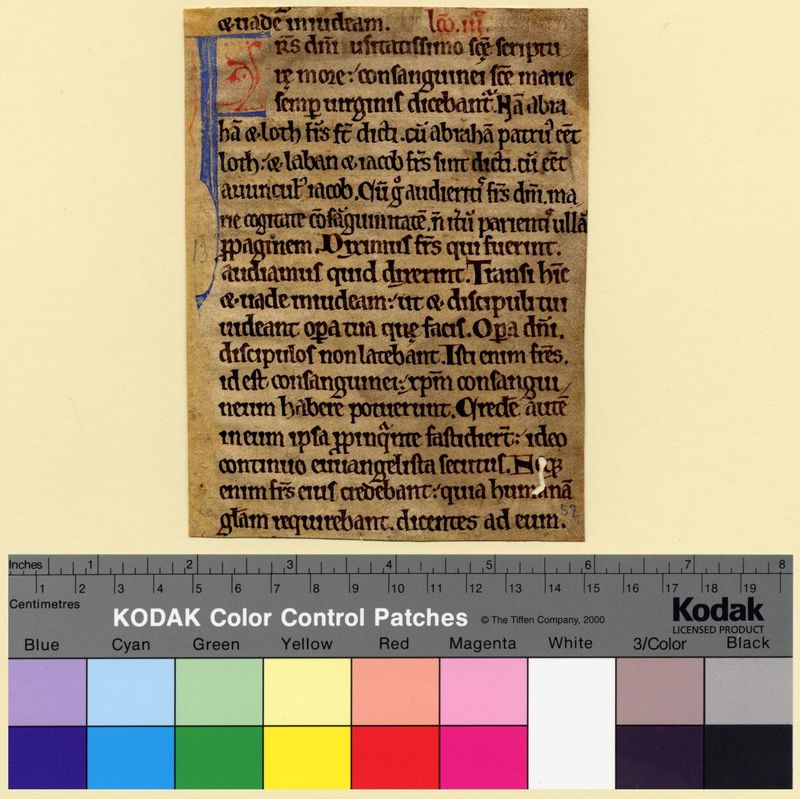 & uadē in iudeam. lc̄o. iii.
Fr̄s dn̄i usitatissimo sc̄ę scriptu
rę more: consanguinei sc̄e marie
semꝑ uirginis dicebant᷑. Nā abra
hā & loth fr̄s st̄ dicti. cū abrahā patruꝰ eēt
loth: & laban & iacob fr̄s sunt dicti. cū eēt
auuncul᷒ iacob. Cū gͦ audieritꝭ fr̄s dn̄i. ma
rie cogitate cōsāguinitatē. n̄ itū parientꝭ ullā
ꝓpaginem. Diximus fr̄s qui fuerint.
audiamus quid dixerint. Transi hīc
& uade in iudeam: ut & discipuli tui
uideant oꝑa tua quę facis. Oꝑa dn̄i.
discipulos non latebant. Isti enim fr̄es.
id est consanguinei: xp̄m consangui
neum habere potuerunt. Credē autē
in eum ipsa ꝓpinqͥte fastidiert̄: ideo
continuo euuangelista secutus. Neqꝫ
enim fr̄s eius credebant: quia humanā
glām requirebant. dicentes ad eum.
13
52
Inches 1 2 3 4 5 6 7 8
1 2 3 4 5 6 7 8 9 10 11 12 13 14 15 16 17 18 19
Centimetres
KODAK Color Control Patches © The Tiffen Company, 2000 Kodak
LICENSED PRODUCT
Blue Cyan Green Yellow Red Magenta White 3/Color Black